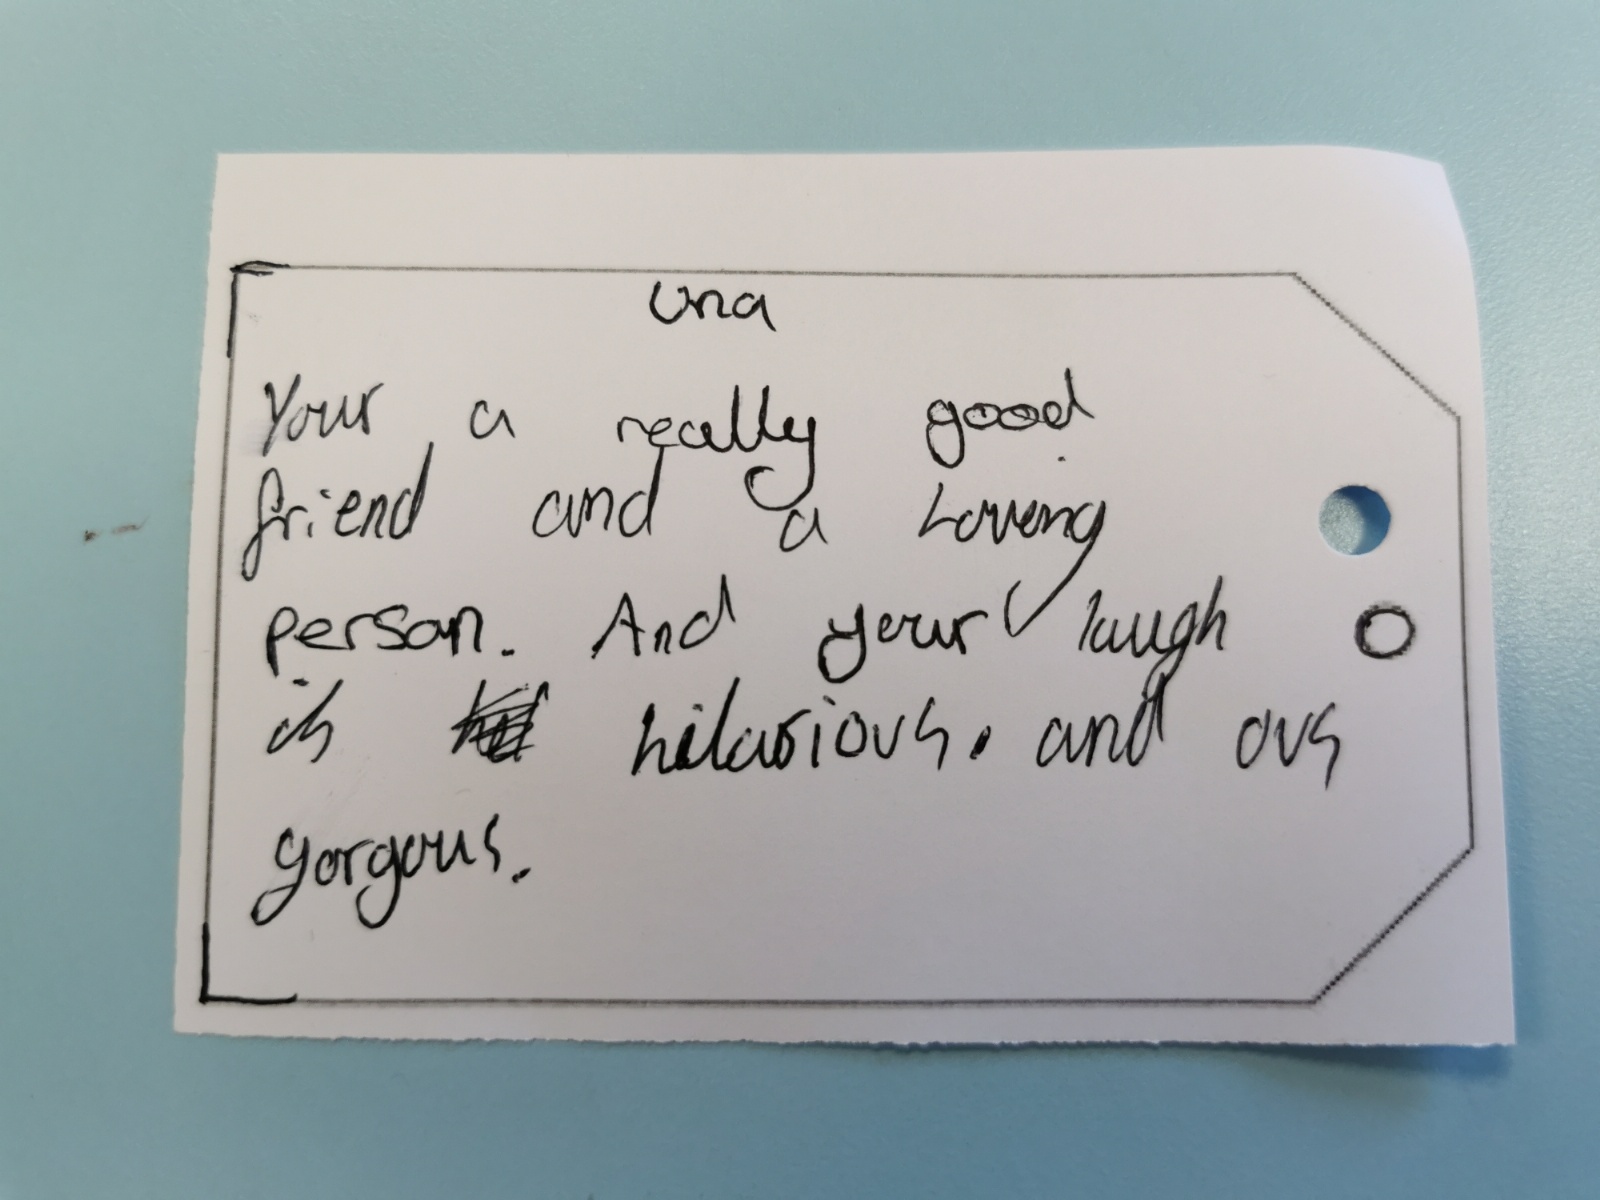 Una
Your a really good
friend and a Loving
person. And your laugh
is hilarious. and
gorgous.